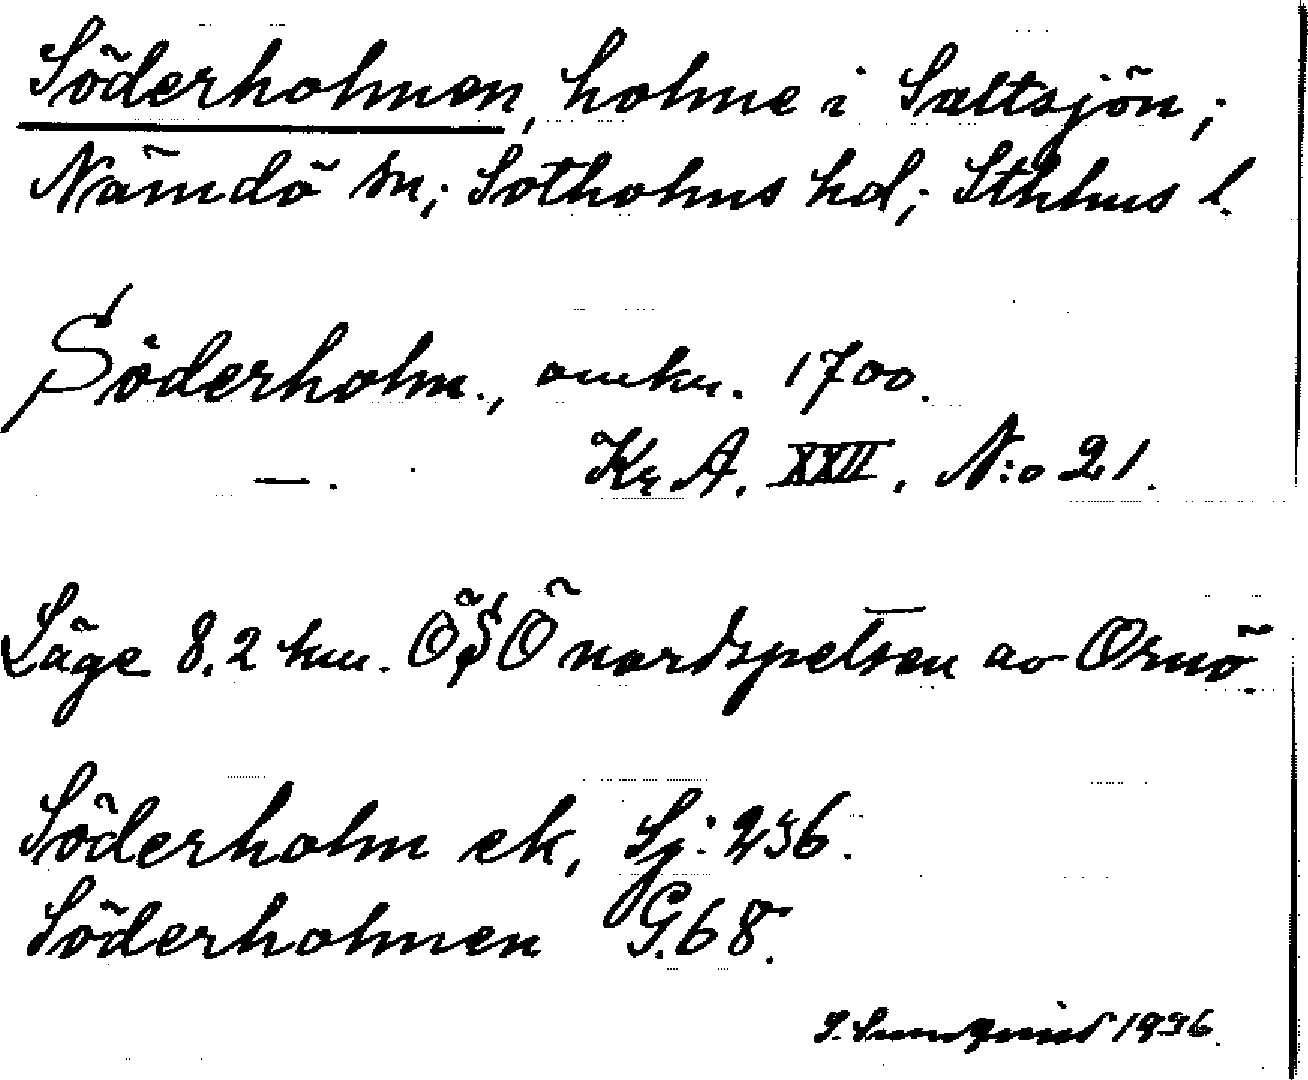 Söderholmen, holme i Saltsjön;
Nämdö sn; Sotholms hd; Sthlms l.
Söderholm., omkr. 1700.
—. Kr. A. XXII. N:o 21.
Läge 8.2 km. ÖSÖ nordspetsen av Ornö.
Söderholm ek, Sj: 236.
Söderholmen G. 68.
S. Sundqvist 1936.